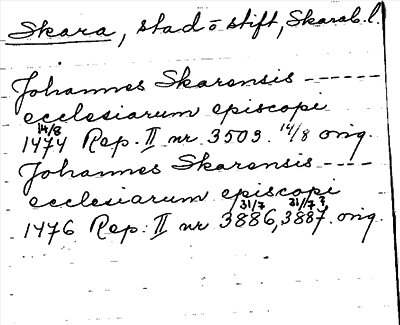 Skara, stad o stift, Skarab. l.
Johannes Skarensis -----
ecclesiarum episcopi
14/8
1474 Rep. II nr 3509. 14/8 orig.
Johannes Skarensis ----
ecclesiarum episcopi
31/7 31/7 ?
1476 Rep. II nr 3886, 3887. orig.